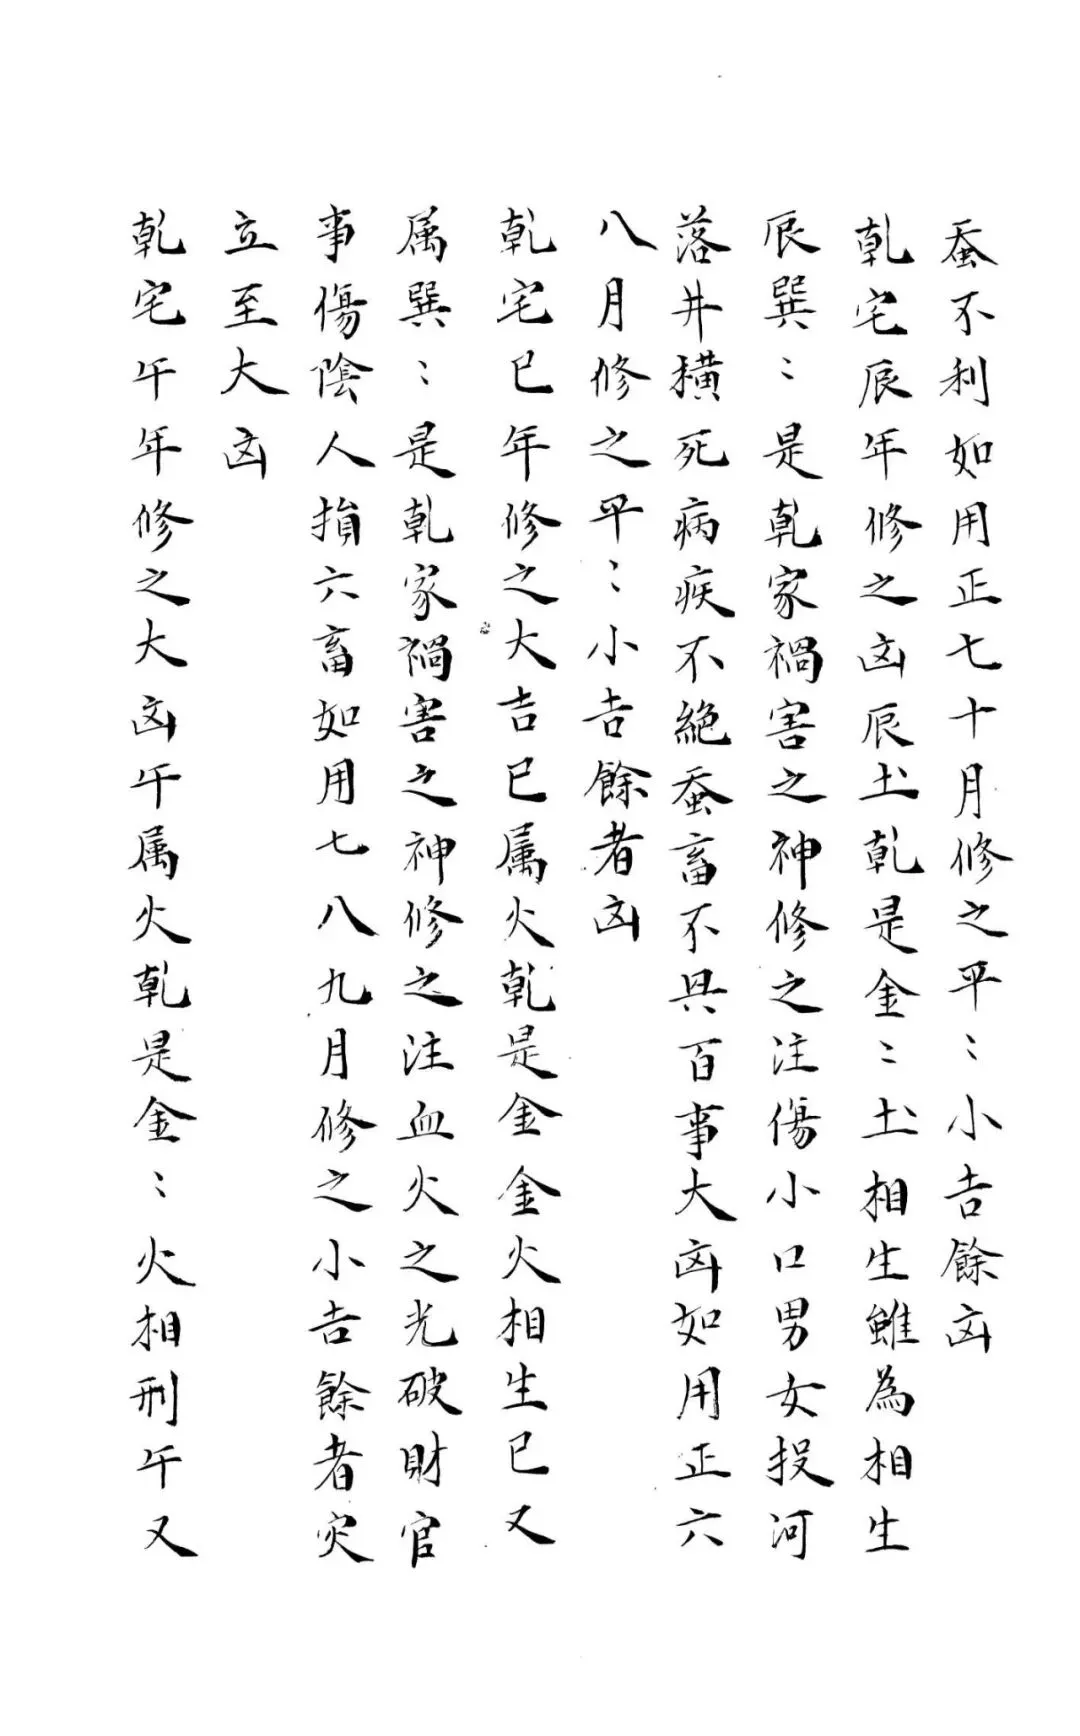 蚕不利如用正七十月修之平〻小吉餘凶
乾宅辰年修之凶辰土乾是金〻土相生雖為相生
辰巽〻是乾家禍害之神修之注傷小口男女投河
落井橫死病疾不絕蚕畜不具百事大凶如用正六
八月修之平〻小吉餘者凶
乾宅巳年修之大吉巳属火乾是金金火相生巳又
属巽〻是乾家禍害之神修之注血火之光破財官
事傷陰人損六畜如用七八九月修之小吉餘者灾
立至大凶
乾宅午年修之大凶午属火乾是金〻火相刑午又